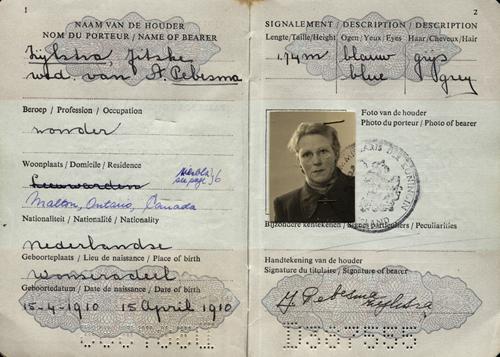 1
NAAM VAN DE HOUDER
NOM DU PORTEUR / NAME OF BEARER
Zijlstra, Jitske
wed. van A. Pebesma
Beroep / Profession / Occupation
zonder
Woonplaats / Domicile / Residence
Leeuwarden
Malton, Ontario, Canada
Nationaliteit / Nationalité / Nationality
nederlandse
Geboorteplaats / Lieu de naissance / Place of birth
Wonseradeel
Geboortedatum / Date de naissance / Date of birth
15-4-1910 15 April 1910
2
SIGNALEMENT / DESCRIPTION / DESCRIPTION
Lengte/Taille/Height Ogen/Yeux/Eyes Haar/Cheveux/Hair
1,74 m blauw grijs
blue grey
Foto van de houder
Photo du porteur / Photo of bearer
Bijzondere kentekenen / Signes particuliers / Peculiarities
Handtekening van de houder
Signature du titulaire / Signature of bearer
J. Pebesma
Zijlstra